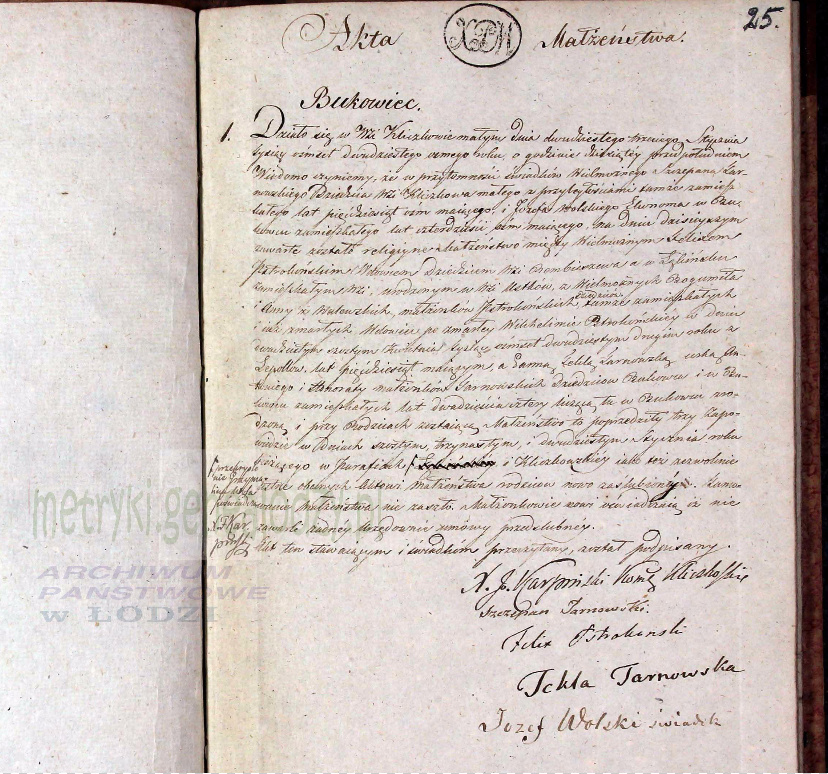 25.
Akta Małżeństwa.
Bukowiec.
1. Działo się w Wsi Kliczkowie małym dnia dwudziestego trzeciego Stycznia
tysiąc ośmset dwudziestego ósmego roku, o godzinie dziesiątéy przed południem
Wiadomo czyniemy, że w przytomności świadków Wielmożnego Szczepana Tar-
nowskiego Dziedzica Wsi Kliczkowa małego z przyległościami tamże zamiesz-
kałego lat pięćdziesiąt ośm maiącego, i Józefa Wolskiego Ekonoma w
zamieszkałego lat czterdzieści maiącego, na dniu dzisieyszym
zawarte zostało religiyne Małżeństwo między Wielmożnym Felixem
Pstrokońskim Wdowcem Dziedzicem Wsi a w
zamieszkałym Wsi, urodzonym w Wsi z Wielmożnych Bogumiła
i Anny z małżonków Pstrokońskich, tamże zamieszkałych
i iuż zmarłych, Wdowcem po zmarłey Wilhelminie Pstrokońskiéy w dniu
dwudziestym szóstym Kwietnia tysiąc ośmset dwudziestym roku z
lat pięćdziesiąt maiącym, a Panną Teklą Tarnowską córką An-
toniego i Honoraty małżonków Tarnowskich Dziedziców i w
zamieszkałych lat dwadzieścia cztery liczącą, tu w uro-
dzoną, i przy Rodzicach zostaiącą. Małżeństwo to poprzedziły trzy Zapo-
wiedzie w Dniach szóstym, trzynastym, i dwudziestym Stycznia roku
bieżącego w Parafiach i Kliczkowskiéy iako też zezwolenie
ustne obecnych Aktowi małżeństwa rodziców nowo zaślubionéy. Tamo-
wanie Małżeństwa nie zaszło. Małżonkowie nowi oświadczaią iż nie
zawarli żadnéy urzędownie umowy przedślubnéy.
Akt ten stawaiącym i świadkom przeczytany, został podpisany.
X. J. Karpiński Kliczkoski
Szczepan Tarnowski.
Felix Pstrokonski
Tekla Tarnowska
Jozef Wolski świadek
X Kar
piński
metryki.genealodzy.pl
ARCHIWUM
PAŃSTWOWE
w ŁODZI